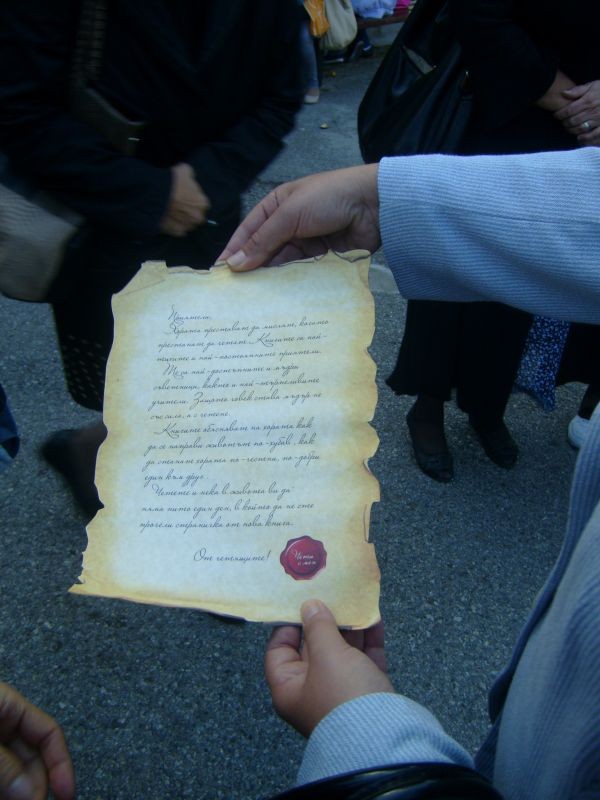 Приятели,
Хората престават да мислят, когато
престанат да четат. Книгите са най-
тихите и най-постоянните приятели.
Те са най-достъпните и мъдри
съветници, както и най-търпеливите
учители. Защото човек става мъдър не
със сила, а с четене.
Книгите обясняват на хората как
да се направи животът по-хубав, как
да станат хората по-честни, по-добри
един към друг.
Четете и нека в живота ви да
няма нито един ден, в който да не сте
прочели страничка от нова книга.
От четящите!
Чети
с мен